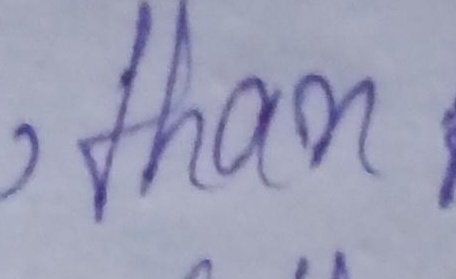 , than